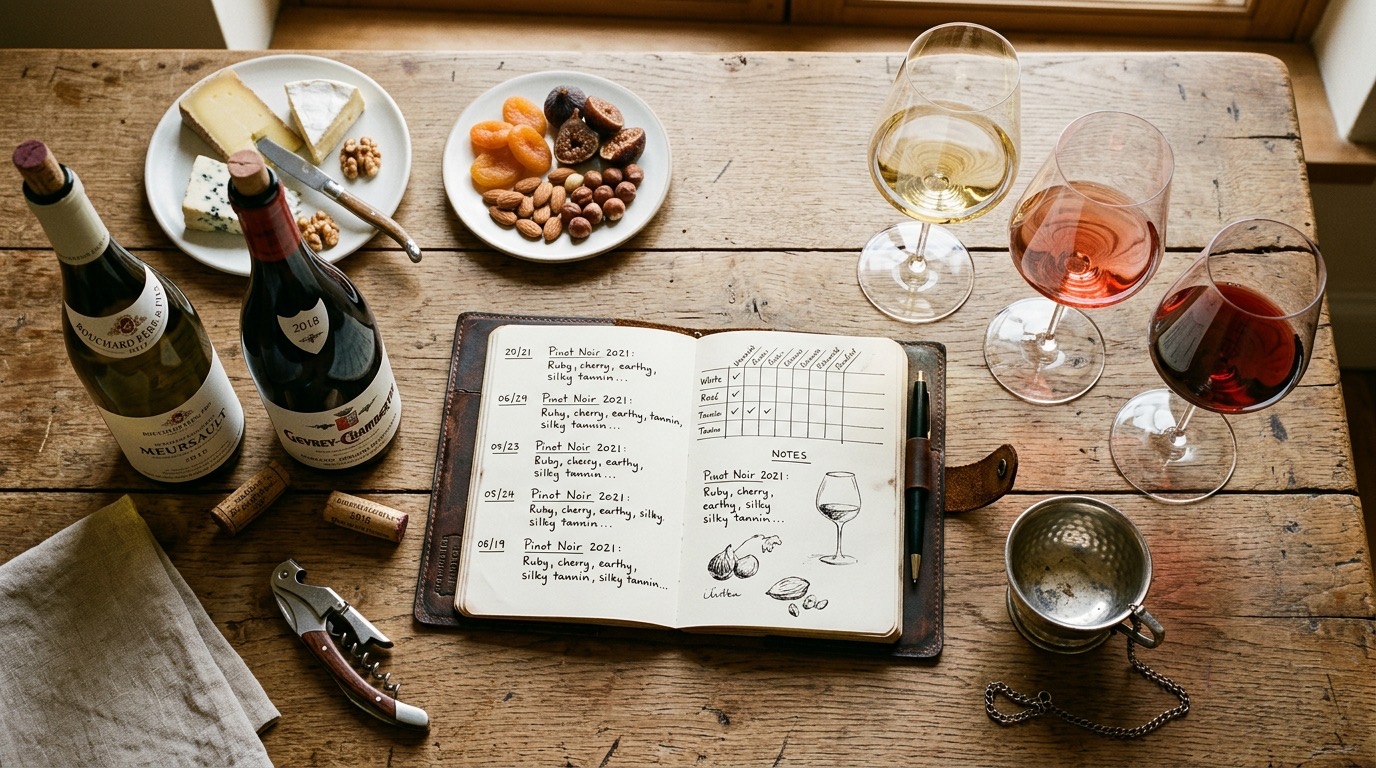 BOUCHARD PÈRE & FILS
MEURSAULT
2018
GEVREY-CHAMBERTIN
20/21 Pinot Noir 2021:
Ruby, cherry, earthy,
silky tannin...
06/29 Pinot Noir 2021:
Ruby, cherry, earthy, tannin,
silky tannin...
05/23 Pinot Noir 2021:
Ruby, cherry, earthy,
silky tannin...
05/24 Pinot Noir 2021:
Ruby, cherry, earthy, silky.
silky tannin...
06/19 Pinot Noir 2021:
Ruby, cherry, earthy,
silky tannin, silky tannin...
White
Rosé
Tannin
Tannin
NOTES
Pinot Noir 2021:
Ruby, cherry,
earthy, silky
silky tannin...